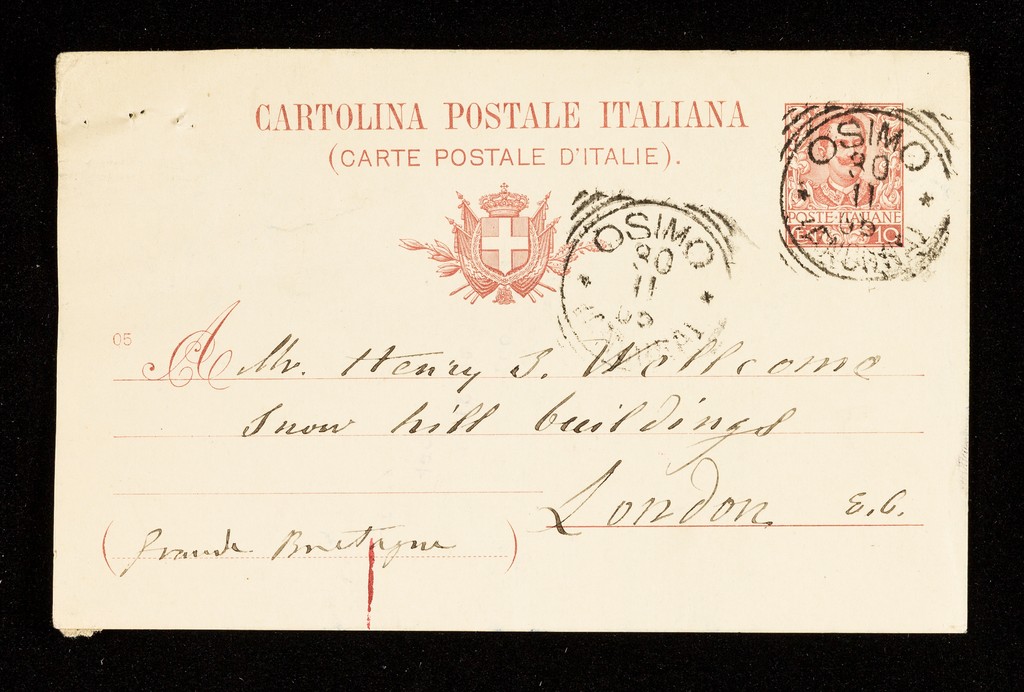 CARTOLINA POSTALE ITALIANA
(CARTE POSTALE D'ITALIE).
OSIMO
30
11
05
(ANCONA)
POSTE·ITALIANE
10
OSIMO
30
11
05
05
A Mr. Henry S. Wellcome
Snow hill buildings
London E.C.
(Grande Bretagne)